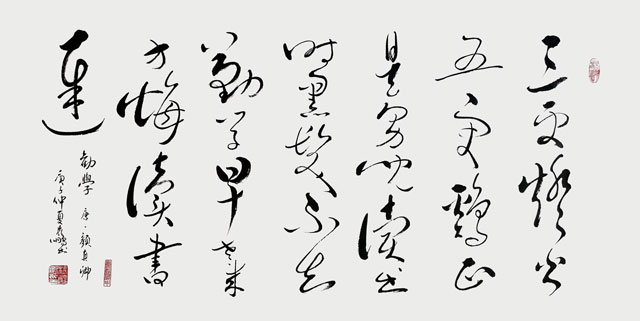 三更燈火
五更鷄正
是男兒讀書
時黑髮不知
勤学早
方悔讀書
遲
勸學 唐·顔真卿
庚子仲夏